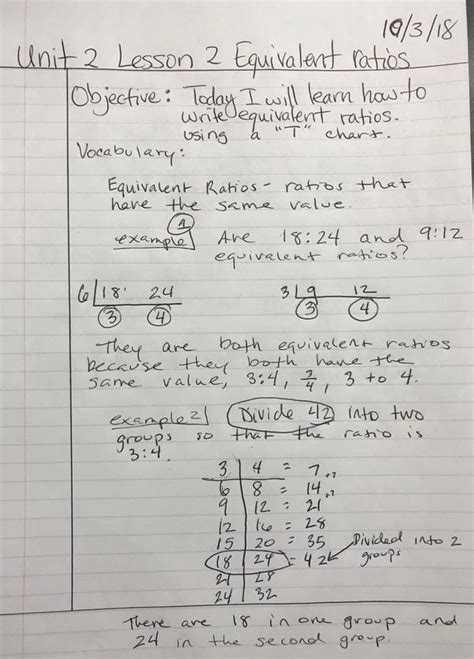 10/3/18
Unit 2 Lesson 2 Equivalent ratios
Objective: Today I will learn how to
write equivalent ratios.
using a "T" chart.
Vocabulary:
Equivalent Ratios - ratios that
have the same value.
example 1 Are 18:24 and 9:12
equivalent ratios?
6 18 24 3 9 12
3 4 3 4
They are both equivalent ratios
because they both have the
same value, 3:4, 3/4, 3 to 4.
example 2 Divide 42 into two
groups so that the ratio is
3:4.
3 4 = 7 +7
6 8 = 14 +7
9 12 = 21
12 16 = 28
15 20 = 35 Divided into 2
18 24 = 42 groups
21 28
24 32
There are 18 in one group and
24 in the second group.